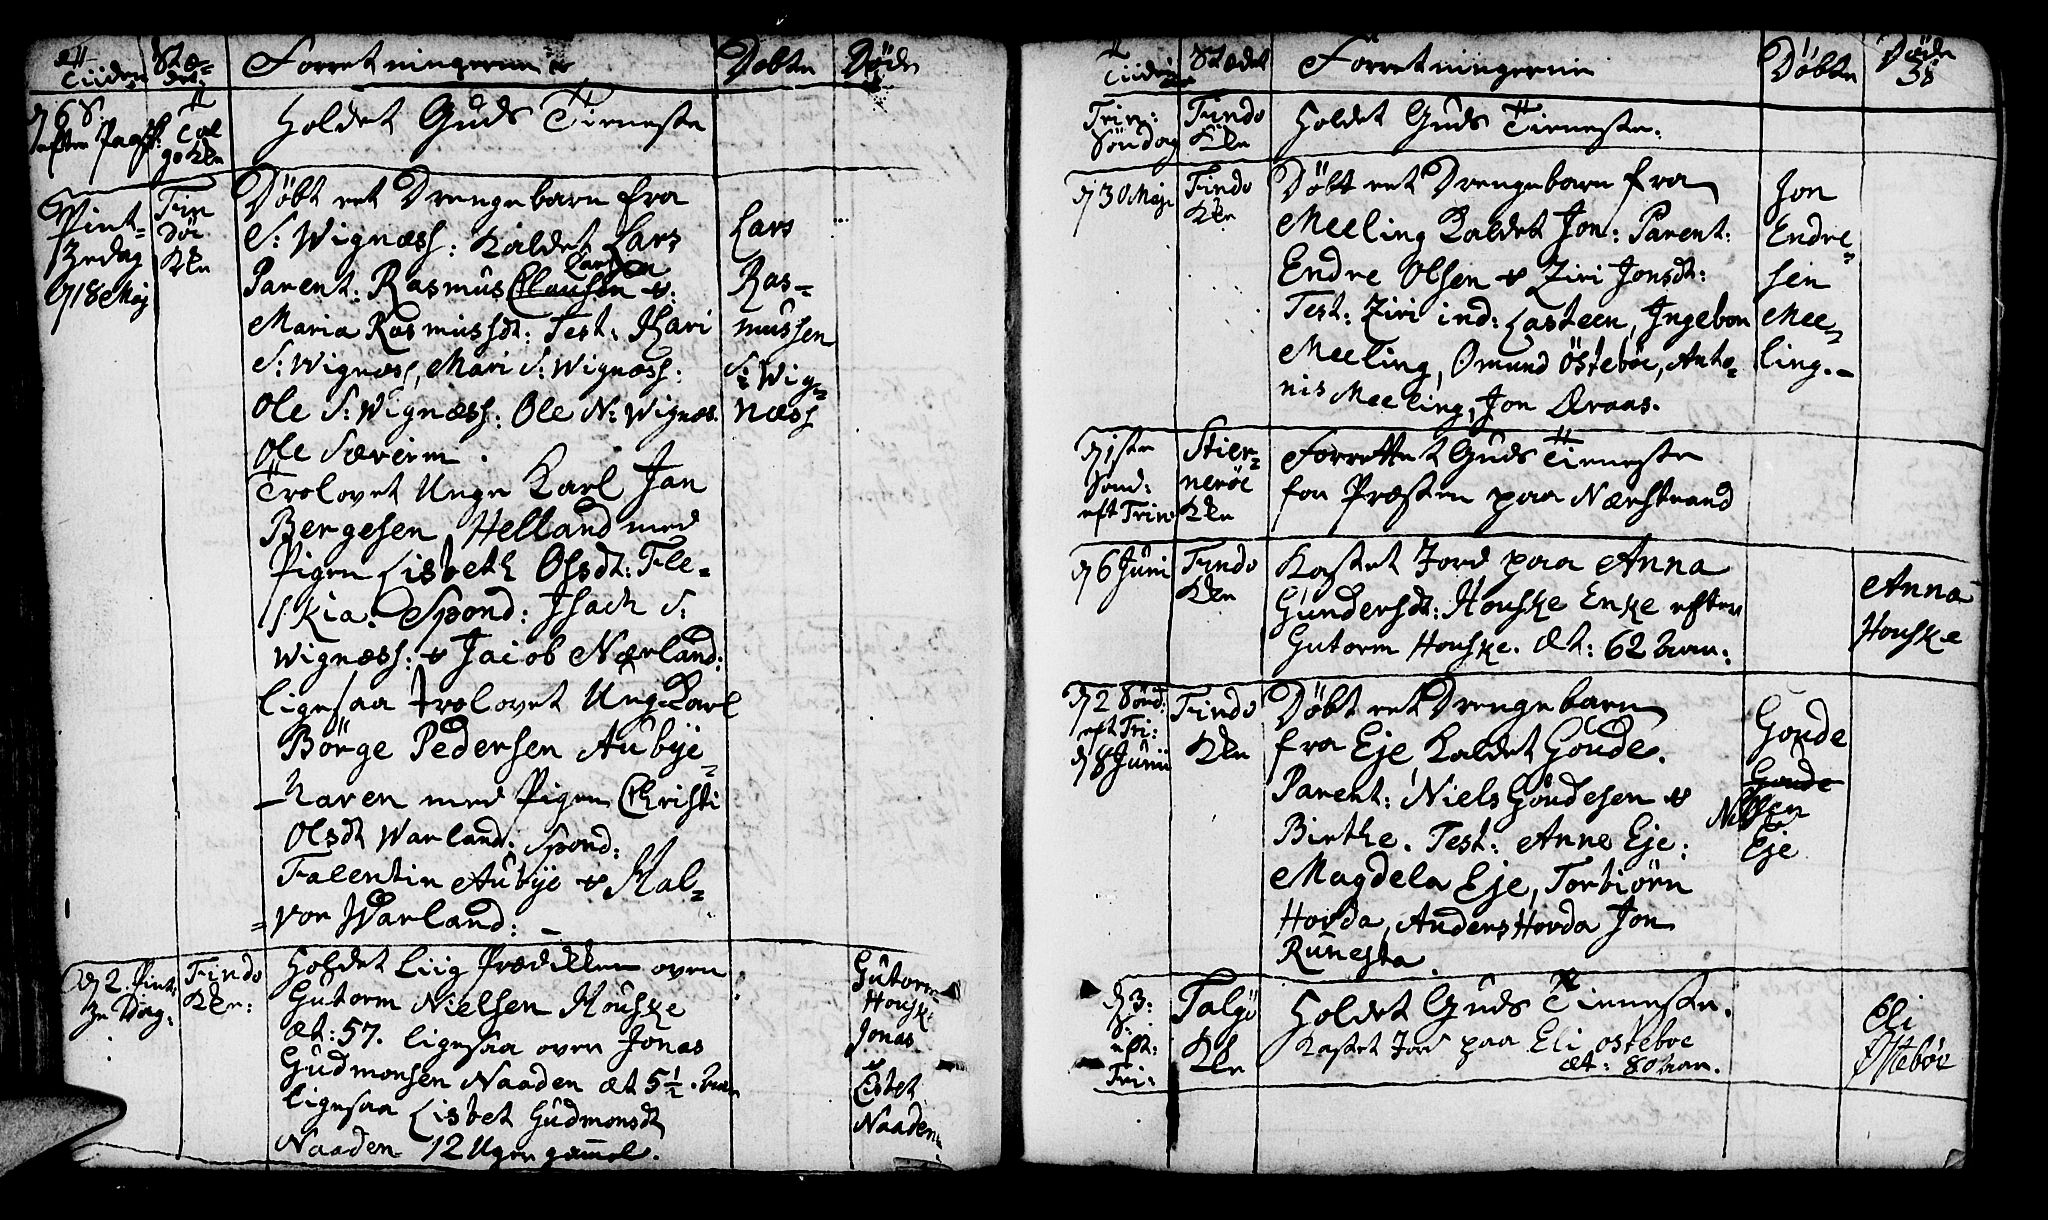 Tiiden
Stædet
Forretningerne
Døbte
Døde
d 6 S.
efter Paask:
Talgø Kle
Holdet Guds Tieneste
Pintzedag
d 18 Maj
Findøe Kle
Døbt et Drengebarn fra
S: Wignæss: Kaldet Lars
Parent: Rasmus Clausen Larsen &:
Maria Rasmusdt: Test: Kari
S: Wignæss, Mari S: Wignæss:
Ole S: Wignæss: Ole N: Wignæs.
Ole Særeim.
Lars
Rasmussen
S: Wignæss
Trolovet Unge Karl Jan
Bergesen Helland med
Pigen Lisbeth Olsdt: Fleskia. Spond: Isach S:
Wignæss: & Jacob Nærland:
ligesaa trolovet Ung Karl
Börge Pedersen Aubyehaven med Pigen Christi
Olsdt Warland: Spond:
Falentin Aubÿe & Halvor Warland:
d 2 Pintze Dag:
Findø Kle:
Holdet Liig Prædikken over
Gutorm Nielsen Houske
æt: 57. ligesaa over Jonas
Gudmonsen Naaden æt 5 1/2 aar
ligesaa Lisbet Gudmonsdt
Naaden 12 Uger gammel.
Gutorm
Houske
Jonas
&
Lisbet
Naaden:
Tiiden
Stædet
Forretningerne
Döbte
Døde
38
Trin:
Søndag
Findø
Kle
Holdet Guds Tieneste:
d 30 Maji
Findø
Kle
Döbt et Drengebarn fra
Meeling Kaldet Jon: Parent:
Endre Olsen & Ziri Jonsdt:
Test: Ziri ind: Lasteen, Ingebor
Meeling, Omund Östebøe, Antonis Meeling, Jon Aaraas.
Jon
Endresen
Meeling.
d 1ste
Sönd:
eft Trin:
Stiernerøe
Kle
Forrettet Guds Tieneste
for Præsten paa Nærstrand
d 6 Juni
Findø
Kle
Kastet Jord paa Anna
Gundersdt: Houske Enke efter
Gutorm Houske. æt: 62 aar:
Anna
Houske
d 2 Sönd:
eft Tri:
d 8 Junii
Findø
Kle
Döbt et Drengebarn
fra Eje Kaldet Goude.
Parent: Niels Göudesen &
Birthe. Test: Anne Eje:
Magdela Eje, Torbiörn
Horda, Anders Horda Jon
Runesta.
Goude
Goude
Nilsen
Eje
d 3:
S:
eft:
Tri:
Talgø
Kle
Holdet Guds Tieneste.
Kastet Jord paa Eli østeboe
æt: 80 aar.
Eli
Østebøe